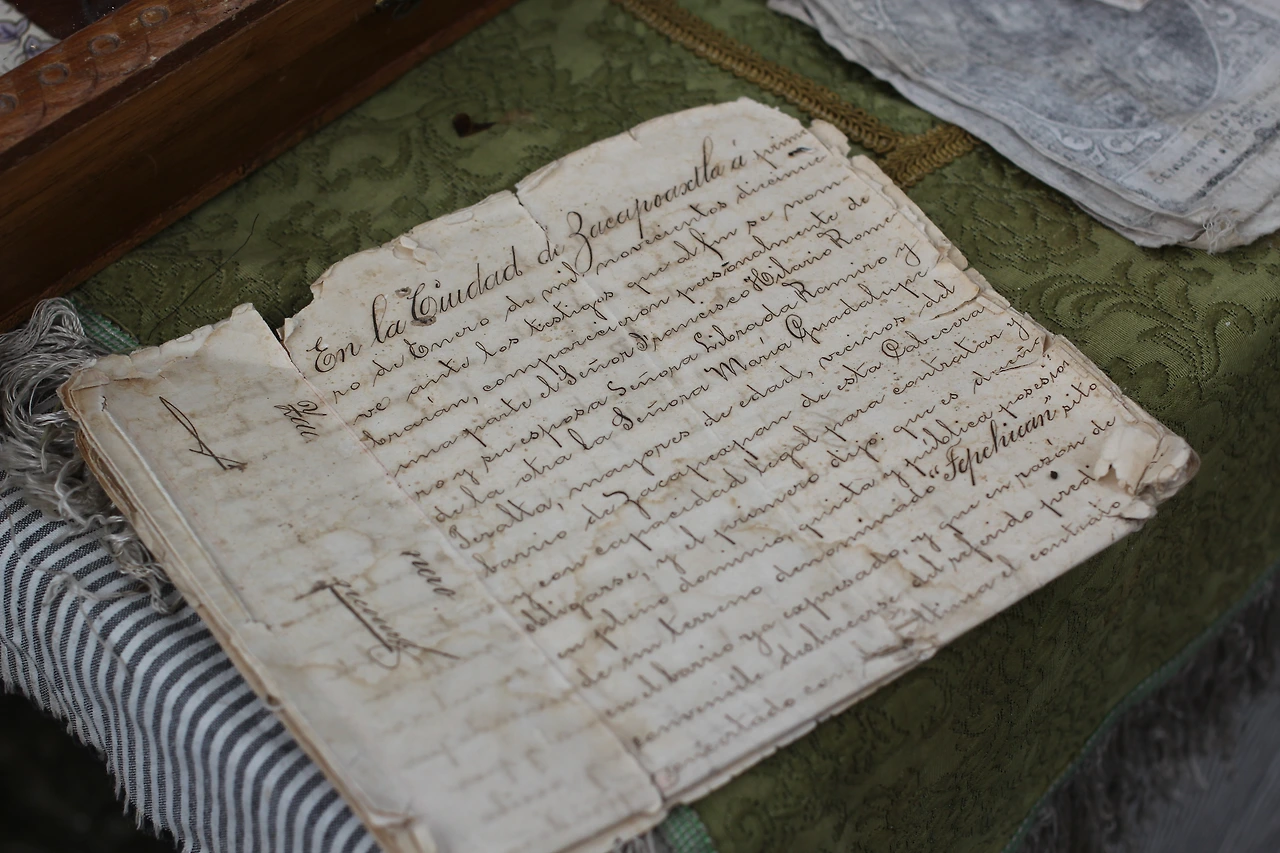 En la Ciudad de Zacapoaxtla á prime
ro de Enero de mil novecientos diecinue
ve ante los testigos que al fin se nom
brarán, comparecieron personalmente de
una parte el Señor Francisco Hilario Rome
ro y su esposa Señora Librada Ramiro y
de la otra la Señora María Guadalupe
Peralta, mayores de edad, vecinos del
barrio de Zacapexpan de esta Cabecera
y con capacidad legal para contratar y
obligarse, y el primero dijo: que es dueño
en pleno dominio, quieta y pública posesión
de un terreno denominado "Tepehican" sito
en el barrio ya expresado, y que en razón de
convenirle deshacerse del referido pred
contrato